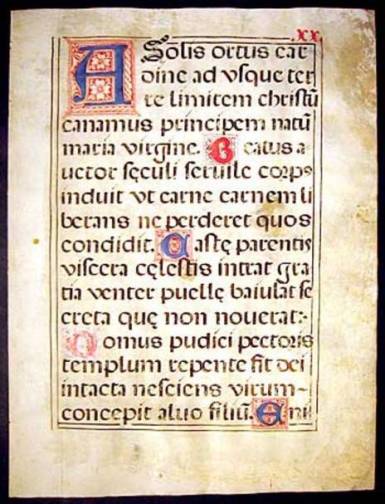 XX
A Solis ortus car
dine ad vsque ter
re limitem christū
canamus principem natū
maria virgine. Beatus a
uctor sęculi seruile corp̄s
induit vt carne carnem li
berans ne perderet quos
condidit. Castę parentis
viscera cęlestis intrat gra
tia venter puellę baiulat se
creta quę non nouerat:-
Domus pudici pectoris
templum repente fit dei
intacta nesciens virum~
concepit aluo filiū. Eni